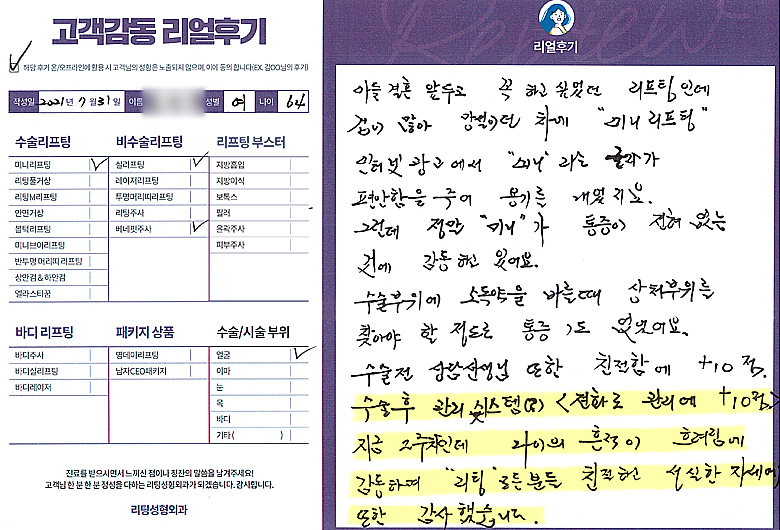 고객감동 리얼후기
해당 후기 온/오프라인에 활용 시 고객님의 성함은 노출되지 않으며, 이에 동의 합니다(EX. 김OO님의 후기)
작성일 2021년 7월 31일 이름 성별 여 나이 64
수술리프팅 비수술리프팅 리프팅 부스터
미니리프팅 실리프팅 지방흡입
리팅풀거상 레이저리프팅 지방이식
리팅M리프팅 투명머리띠리프팅 보톡스
안면거상 리팅주사 필러
볼턱리프팅 베네핏주사 윤곽주사
미니브이리프팅 피부주사
반투명 머리띠 리프팅
상안검 & 하안검
엘라스티꿈
바디 리프팅 패키지 상품 수술/시술 부위
바디주사 영데이리프팅 얼굴
바디실리프팅 남자CEO패키지 이마
바디레이저 눈
목
바디
기타( )
진료를 받으시면서 느끼신 점이나 칭찬의 말씀을 남겨주세요!
고객님 한 분 한 분 정성을 다하는 리팅성형외과가 되겠습니다. 감사합니다.
리팅성형외과
리얼후기
아들 결혼 앞두고 꼭 하고 싶었던 리프팅인데
겁이 많아 망설이던 차에 "미니 리프팅"
인터넷 광고에서 "미니" 라는 글자가
편안함을 주어 용기를 내었지요.
그런데 정말 "미니"가 통증이 전혀 없는
것에 감동하고 있어요.
수술부위에 소독약을 바를때 상처부위를
찾아야 할 정도로 통증 도 없었어요.
수술전 상담선생님 또한 친절함에 +10점.
수술후 관리 시스템(?) <전화로 관리에 +10점>
지금 2주차인데 나이의 흔적이 흐려짐에
감동하며 "리팅" 모든분들 친절하고 성실한 자세에
또한 감사했습니다.